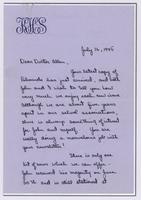 July 16, 1945
Dear Doctor Allen,
Your latest copy of
has just arrived, and both
John and I wish to tell you how
very much we enjoy each issue
Although we are about five years
apart in our school associations,
there is always something of interest
for John and myself. You are
really doing a marvelous job with
your newsletter!
There is only one
bit of news which we can offer
John received his majority on June
and is still stationed at